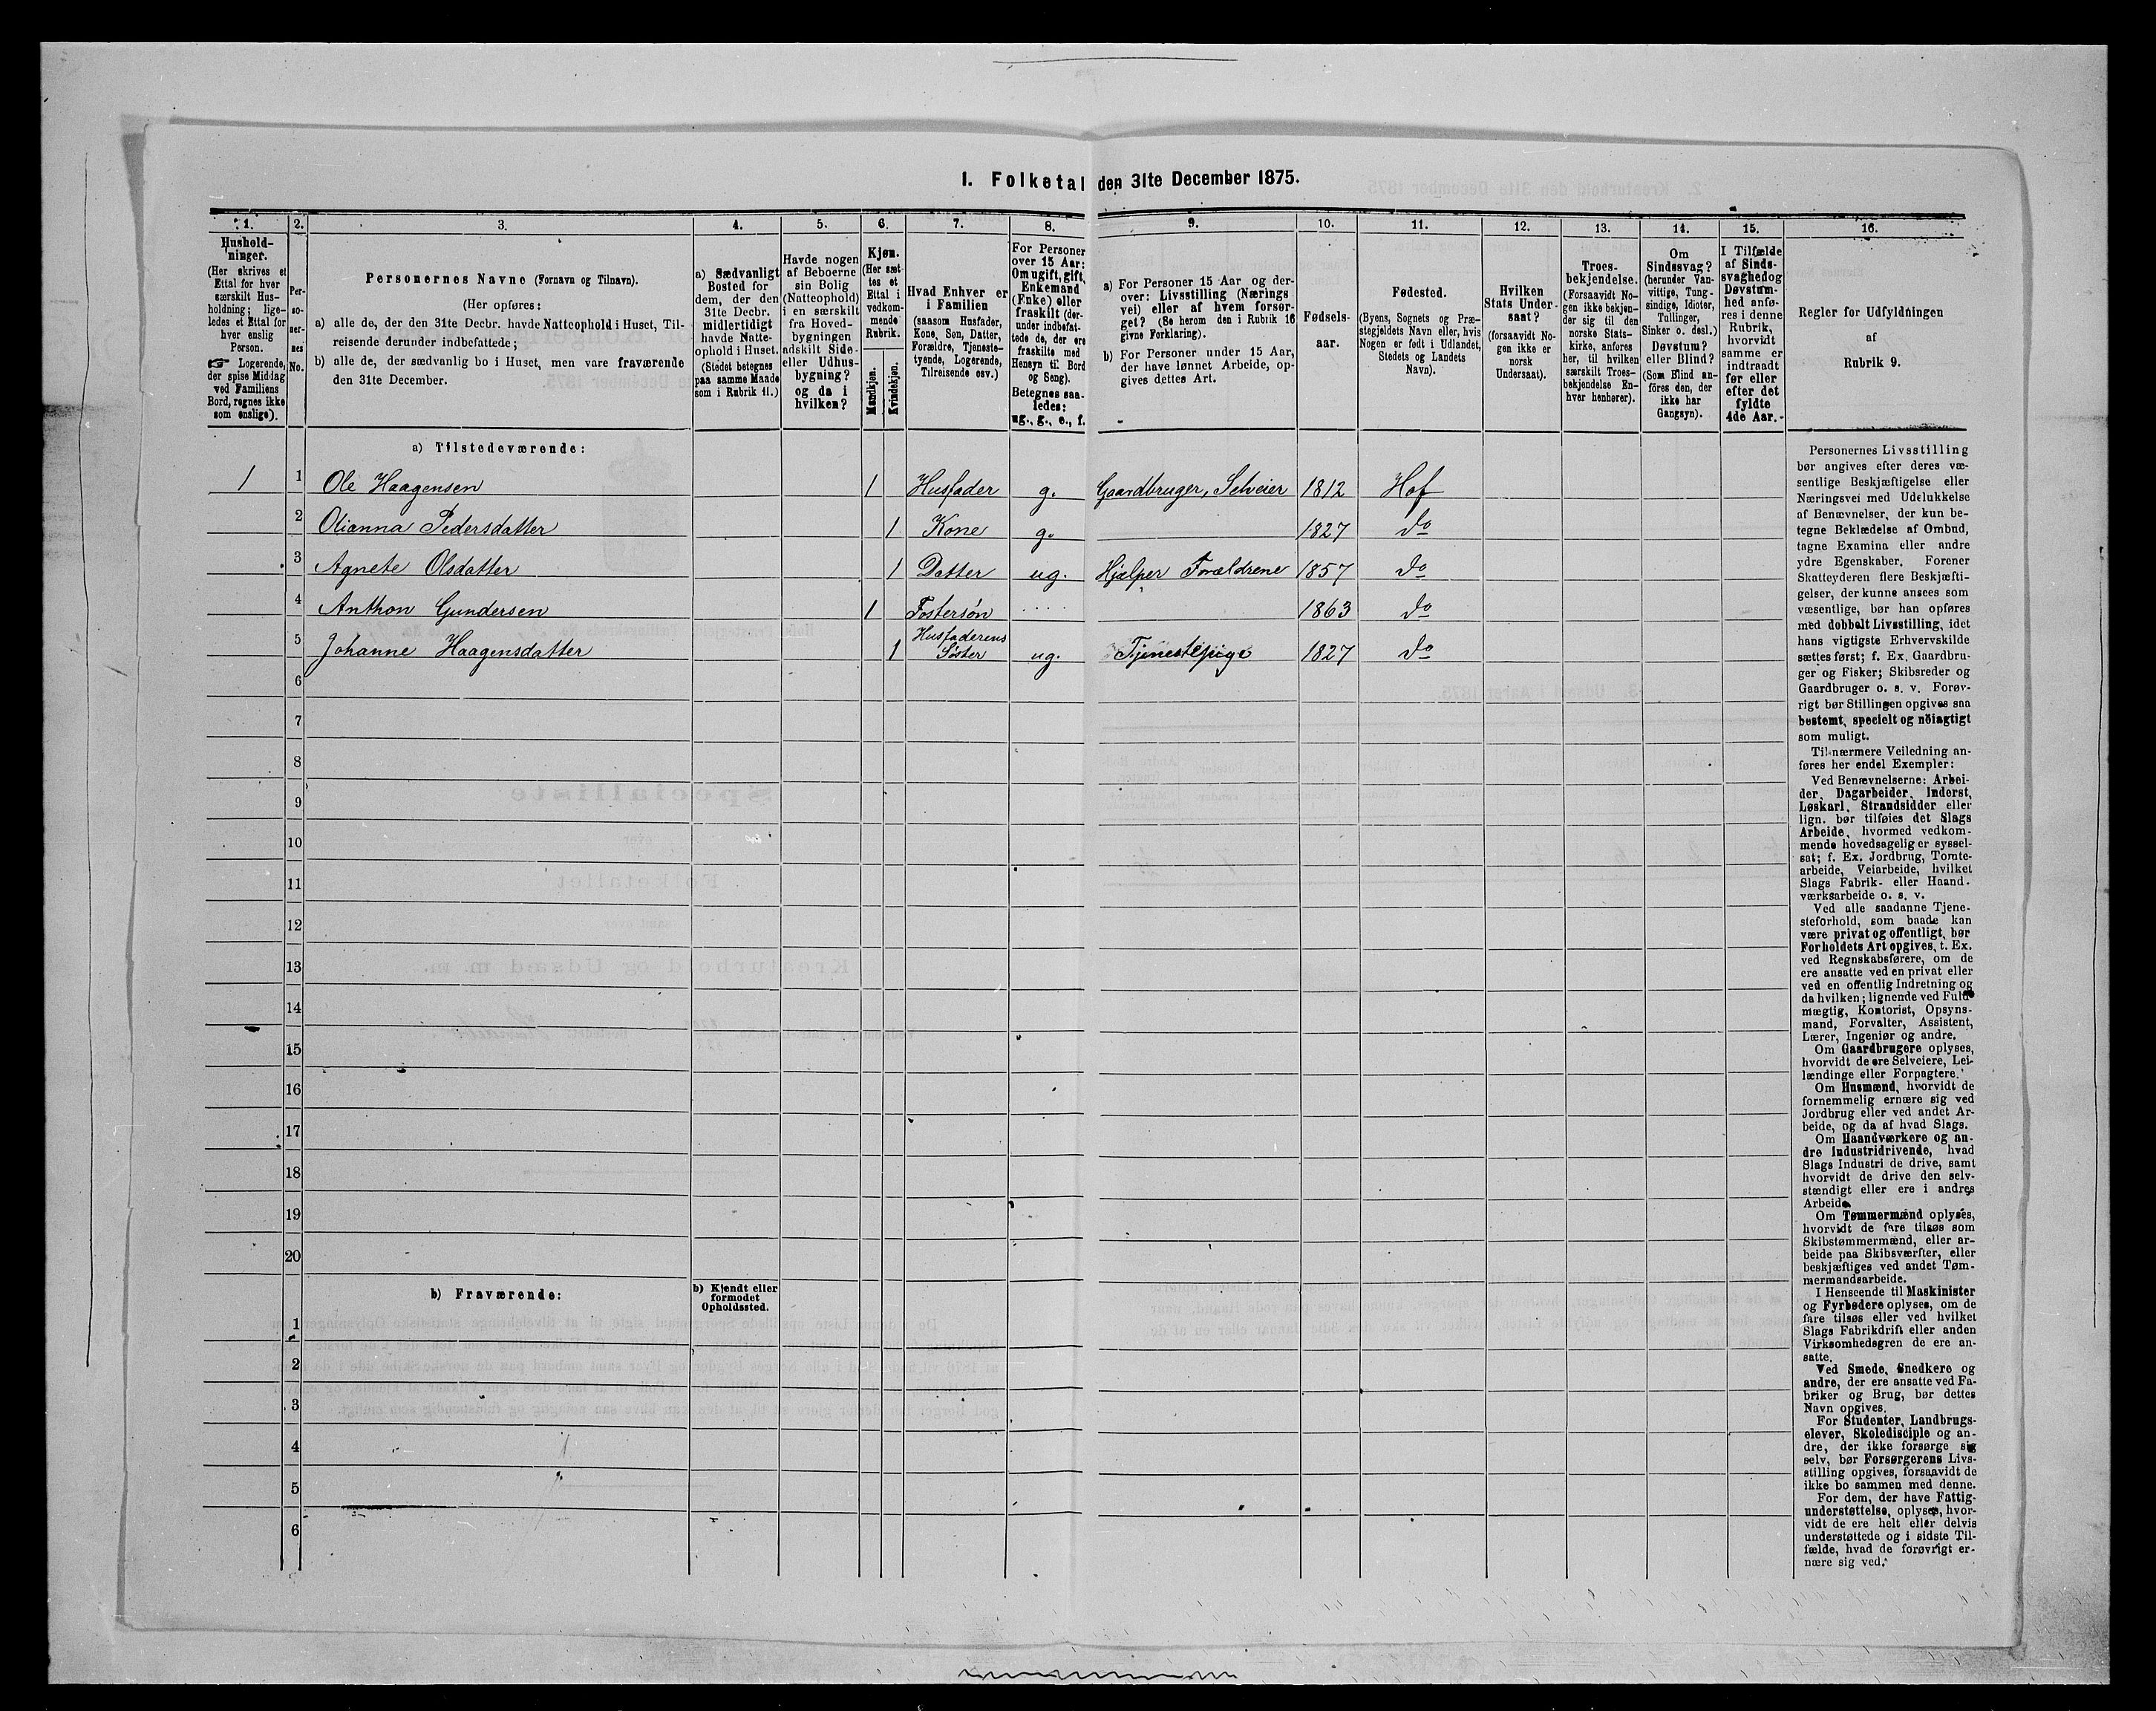 I. Folketal den 31te December 1875.
1. 2. 3. 4. 5. 6. 7. 8. 9. 10. 11. 12. 13. 14. 15. 16.
Hushold-
ninger.
(Her skrives et
Ettal for hver
særskilt Hus-
holdning; lige-
ledes et Ettal for
hver enslig
Person.
☞ Logerende,
der spise Middag
ved Familiens
Bord, regnes ikke
som enslige).
Per-
so-
ner-
nes
No.
Personernes Navne (Fornavn og Tilnavn).
(Her opføres:
a) alle de, der den 31te Decbr. havde Natteophold i Huset, Til-
reisende derunder indbefattede;
b) alle de, der sædvanlig bo i Huset, men vare fraværende
den 31te December.
a) Sædvanligt
Bosted for
dem, der den
31te Decbr.
midlertidigt
havde Natte-
ophold i Huset.
(Stedet betegnes
paa samme Maade
som i Rubrik 11.)
Havde nogen
af Beboerne
sin Bolig
(Natteophold)
i en særskilt
fra Hoved-
bygningen
adskilt Side-
eller Udhus-
bygning?
og da i
hvilken?
Kjøn.
(Her sæt-
tes et
Ettal i
vedkom-
mende
Rubrik.
Mandkjøn.
Kvindekjøn.
Hvad Enhver er
i Familien
(saasom Husfader,
Kone, Søn, Datter,
Forældre, Tjeneste-
tyende, Logerende,
Tilreisende osv.)
For Personer
over 15 Aar:
Om ugift, gift,
Enkemand
(Enke) eller
fraskilt (der-
under indbefat-
tede de, der ere
fraskilte med
Hensyn til Bord
og Seng).
Betegnes saa-
ledes:
ug., g., e., f.
a) For Personer 15 Aar og der-
over: Livsstilling (Nærings
vei) eller af hvem forsør-
get? (Se herom den i Rubrik 16
givne Forklaring).
b) For Personer under 15 Aar,
der have lønnet Arbeide, op-
gives dettes Art.
Fødsels-
aar.
Fødested.
(Byens, Sognets og Præ-
stegjeldets Navn eller, hvis
Nogen er født i Udlandet,
Stedets og Landets
Navn).
Hvilken
Stats Under-
saat?
(forsaavidt No-
gen ikke er
norsk
Undersaat).
Troes-
bekjendelse.
(Forsaavidt No-
gen ikke bekjen-
der sig til den
norske Stats-
kirke, anføres
her, til hvilken
særskilt Troes-
bekjendelse En-
hver henhører).
Om
Sindssvag?
(herunder Van-
vittige, Tung-
sindige, Idioter,
Tullinger,
Sinker o. desl.)
Døvstum?
eller Blind?
(Som Blind an-
føres den, der
ikke har
Gangsyn).
I Tilfælde
af Sinds-
svaghed og
Døvstum-
hed anfø-
res i denne
Rubrik,
hvorvidt
samme er
indtraadt
før eller
efter det
fyldte
4de Aar.
Regler for Udfyldningen
af
Rubrik 9.
a) Tilstedeværende:
1 1 Ole Haagensen 1 Husfader g. Gaardbruger, Selveier 1812 Hof
2 Olianna Pedersdatter 1 Kone g. 1827 do
3 Agnete Olsdatter 1 Datter ug. Hjælper Forældrene 1857 do
4 Anthon Gundersen 1 Fostersøn .... 1863 do
5 Johanne Haagensdatter 1 Husfaderens
Søster ug. Tjenestepige 1827 do
6
7
8
9
10
11
12
13
14
15
16
17
18
19
20
b) Fraværende:
b) Kjendt eller
formodet
Opholdssted.
1
2
3
4
5
6
Personernes Livsstilling
bør angives efter deres væ-
sentlige Beskjæftigelse eller
Næringsvei med Udelukkelse
af Benævnelser, der kun be-
tegne Beklædelse af Ombud,
tagne Examina eller andre
ydre Egenskaber. Forener
Skatteyderen flere Beskjæfti-
gelser, der kunne ansees som
væsentlige, bør han opføres
med dobbelt Livsstilling, idet
hans vigtigste Erhvervskilde
sættes først; f. Ex. Gaardbru-
ger og Fisker; Skibsreder og
Gaardbruger o. s. v. Forøv-
rigt bør Stillingen opgives saa
bestemt, specielt og nöiagtigt
som muligt.
Til nærmere Veiledning an-
føres her endel Exempler:
Ved Benævnelserne: Arbei-
der, Dagarbeider, Inderst,
Løskarl, Strandsidder eller
lign. bør tilføies det Slags
Arbeide, hvormed vedkom-
mende hovedsagelig er syssel-
sat; f. Ex. Jordbrug, Tomte-
arbeide, Veiarbeide, hvilket
Slags Fabrik- eller Haand-
værksarbeide o. s. v.
Ved alle saadanne Tjene-
steforhold, som baade kan
være privat og offentligt, bør
Forholdets Art opgives, t. Ex.
ved Regnskabsførere, om de
ere ansatte ved en privat eller
ved en offentlig Indretning og
da hvilken; lignende ved Fuld-
mægtig, Kontorist, Opsyns-
mand, Forvalter, Assistent,
Lærer, Ingeniør og andre.
Om Gaardbrugere oplyses,
hvorvidt de ere Selveiere, Lei-
lændinge eller Forpagtere.
Om Husmænd, hvorvidt de
fornemmelig ernære sig ved
Jordbrug eller ved andet Ar-
beide, og da af hvad Slags.
Om Haandværkere og an-
dre Industridrivende, hvad
Slags Industri de drive, samt
hvorvidt de drive den selv-
stændigt eller ere i andres
Arbeide.
Om Tømmermænd oplyses,
hvorvidt de fare tilsøs som
Skibstømmermænd, eller ar-
beide paa Skibsværfter, eller
beskjæftiges ved andet Tøm-
mermandsarbeide.
I Henseende til Maskinister
og Fyrbødere oplyses, om de
fare tilsøs eller ved hvilket
Slags Fabrikdrift eller anden
Virksomhedsgren de ere an-
satte.
Ved Smede, Snedkere og
andre, der ere ansatte ved Fa-
briker og Brug, bør dettes
Navn opgives.
For Studenter, Landbrugs-
elever, Skoledisciple og an-
dre, der ikke forsørge sig
selv, bør Forsørgerens Livs-
stilling opgives, forsaavidt de
ikke bo sammen med denne.
For dem, der have Fattig-
understøttelse, oplyses, hvor-
vidt de ere helt eller delvis
understøttede og i sidste Til-
fælde, hvad de forøvrigt er-
nære sig ved.